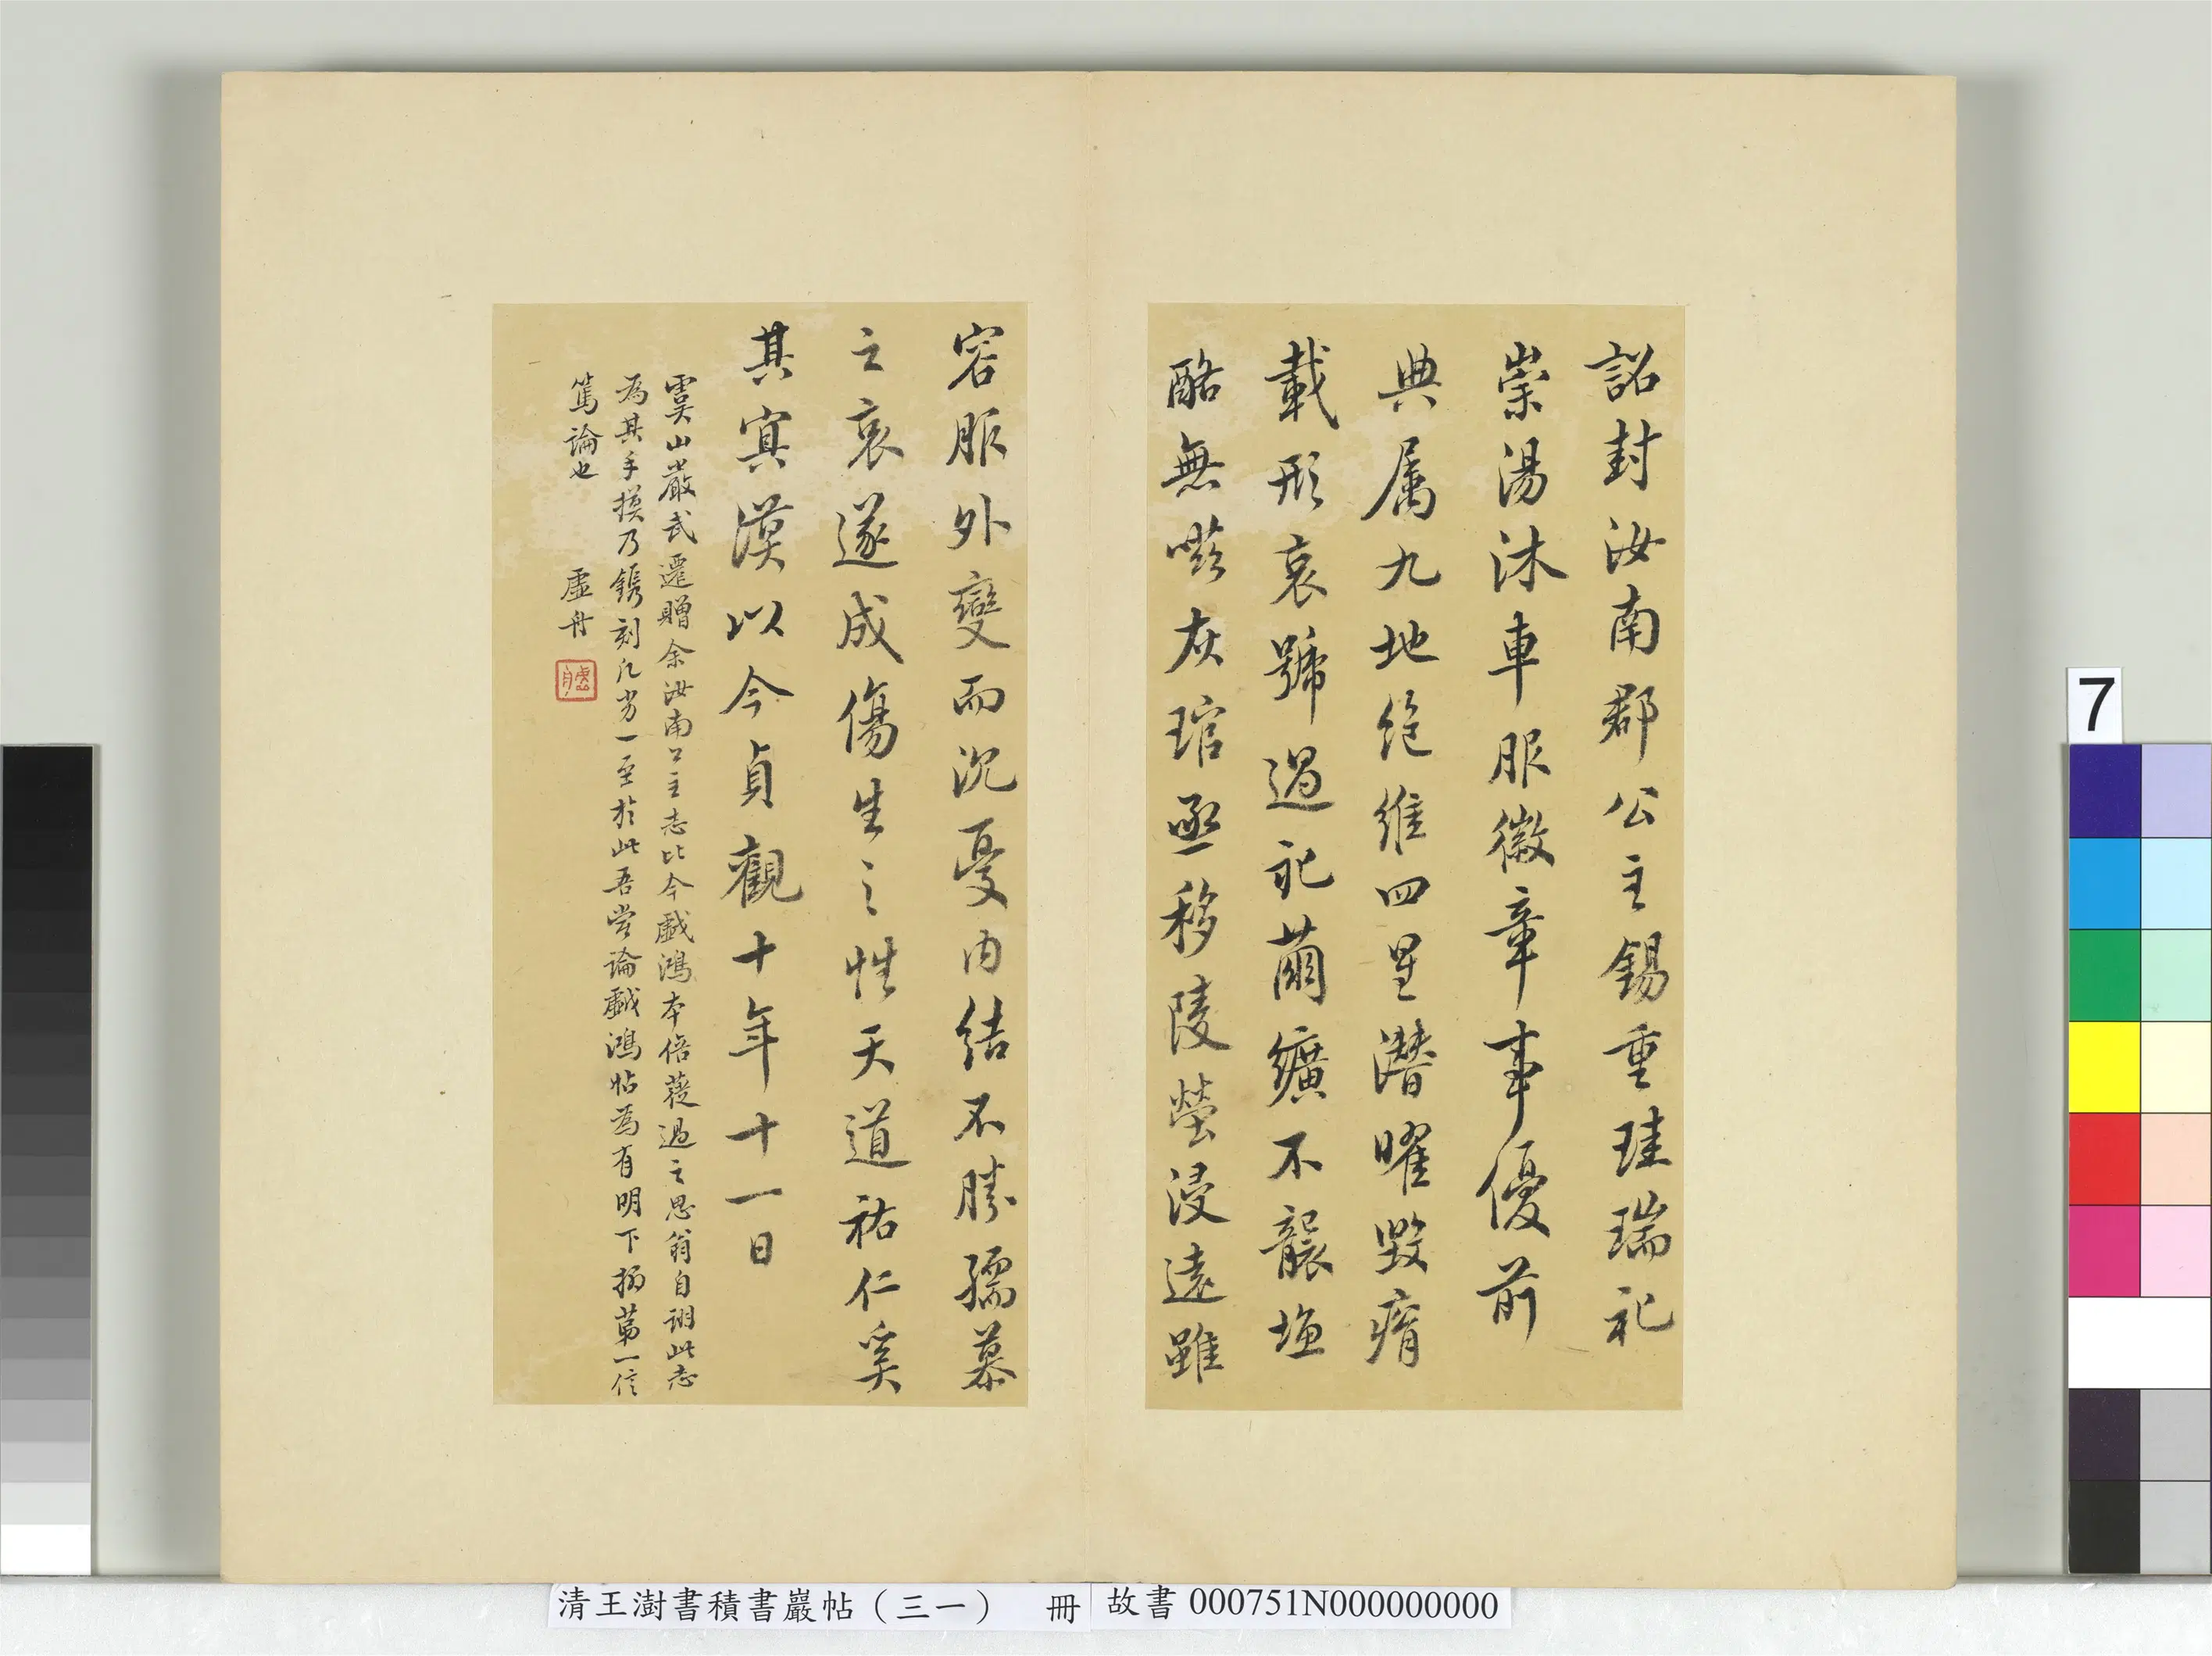 詔封汝南郡公主錫重珪瑞祀
崇湯沐車服徽章事優前
典属九地絕維四星潛曜毀瘠
載形哀號過礼繭纊不襲塩
酪無嗞灰琯亟移陵塋浸遠雖
容服外變而沉憂内結不勝孺慕
之哀遂成傷生之性天道祐仁奚
其冥漠以今貞觀十年十一日
虞山嚴武遷贈余汝南公主志比今戲鴻本倍蓰過之思翁自詡此志
為其手摸乃鐫刻凡劣一至於此吾嘗論戲鴻帖為有明下拓第一信
篤論也 虛舟
虛舟
7
清王澍書積書巖帖（三一） 冊
故書 000751N000000000